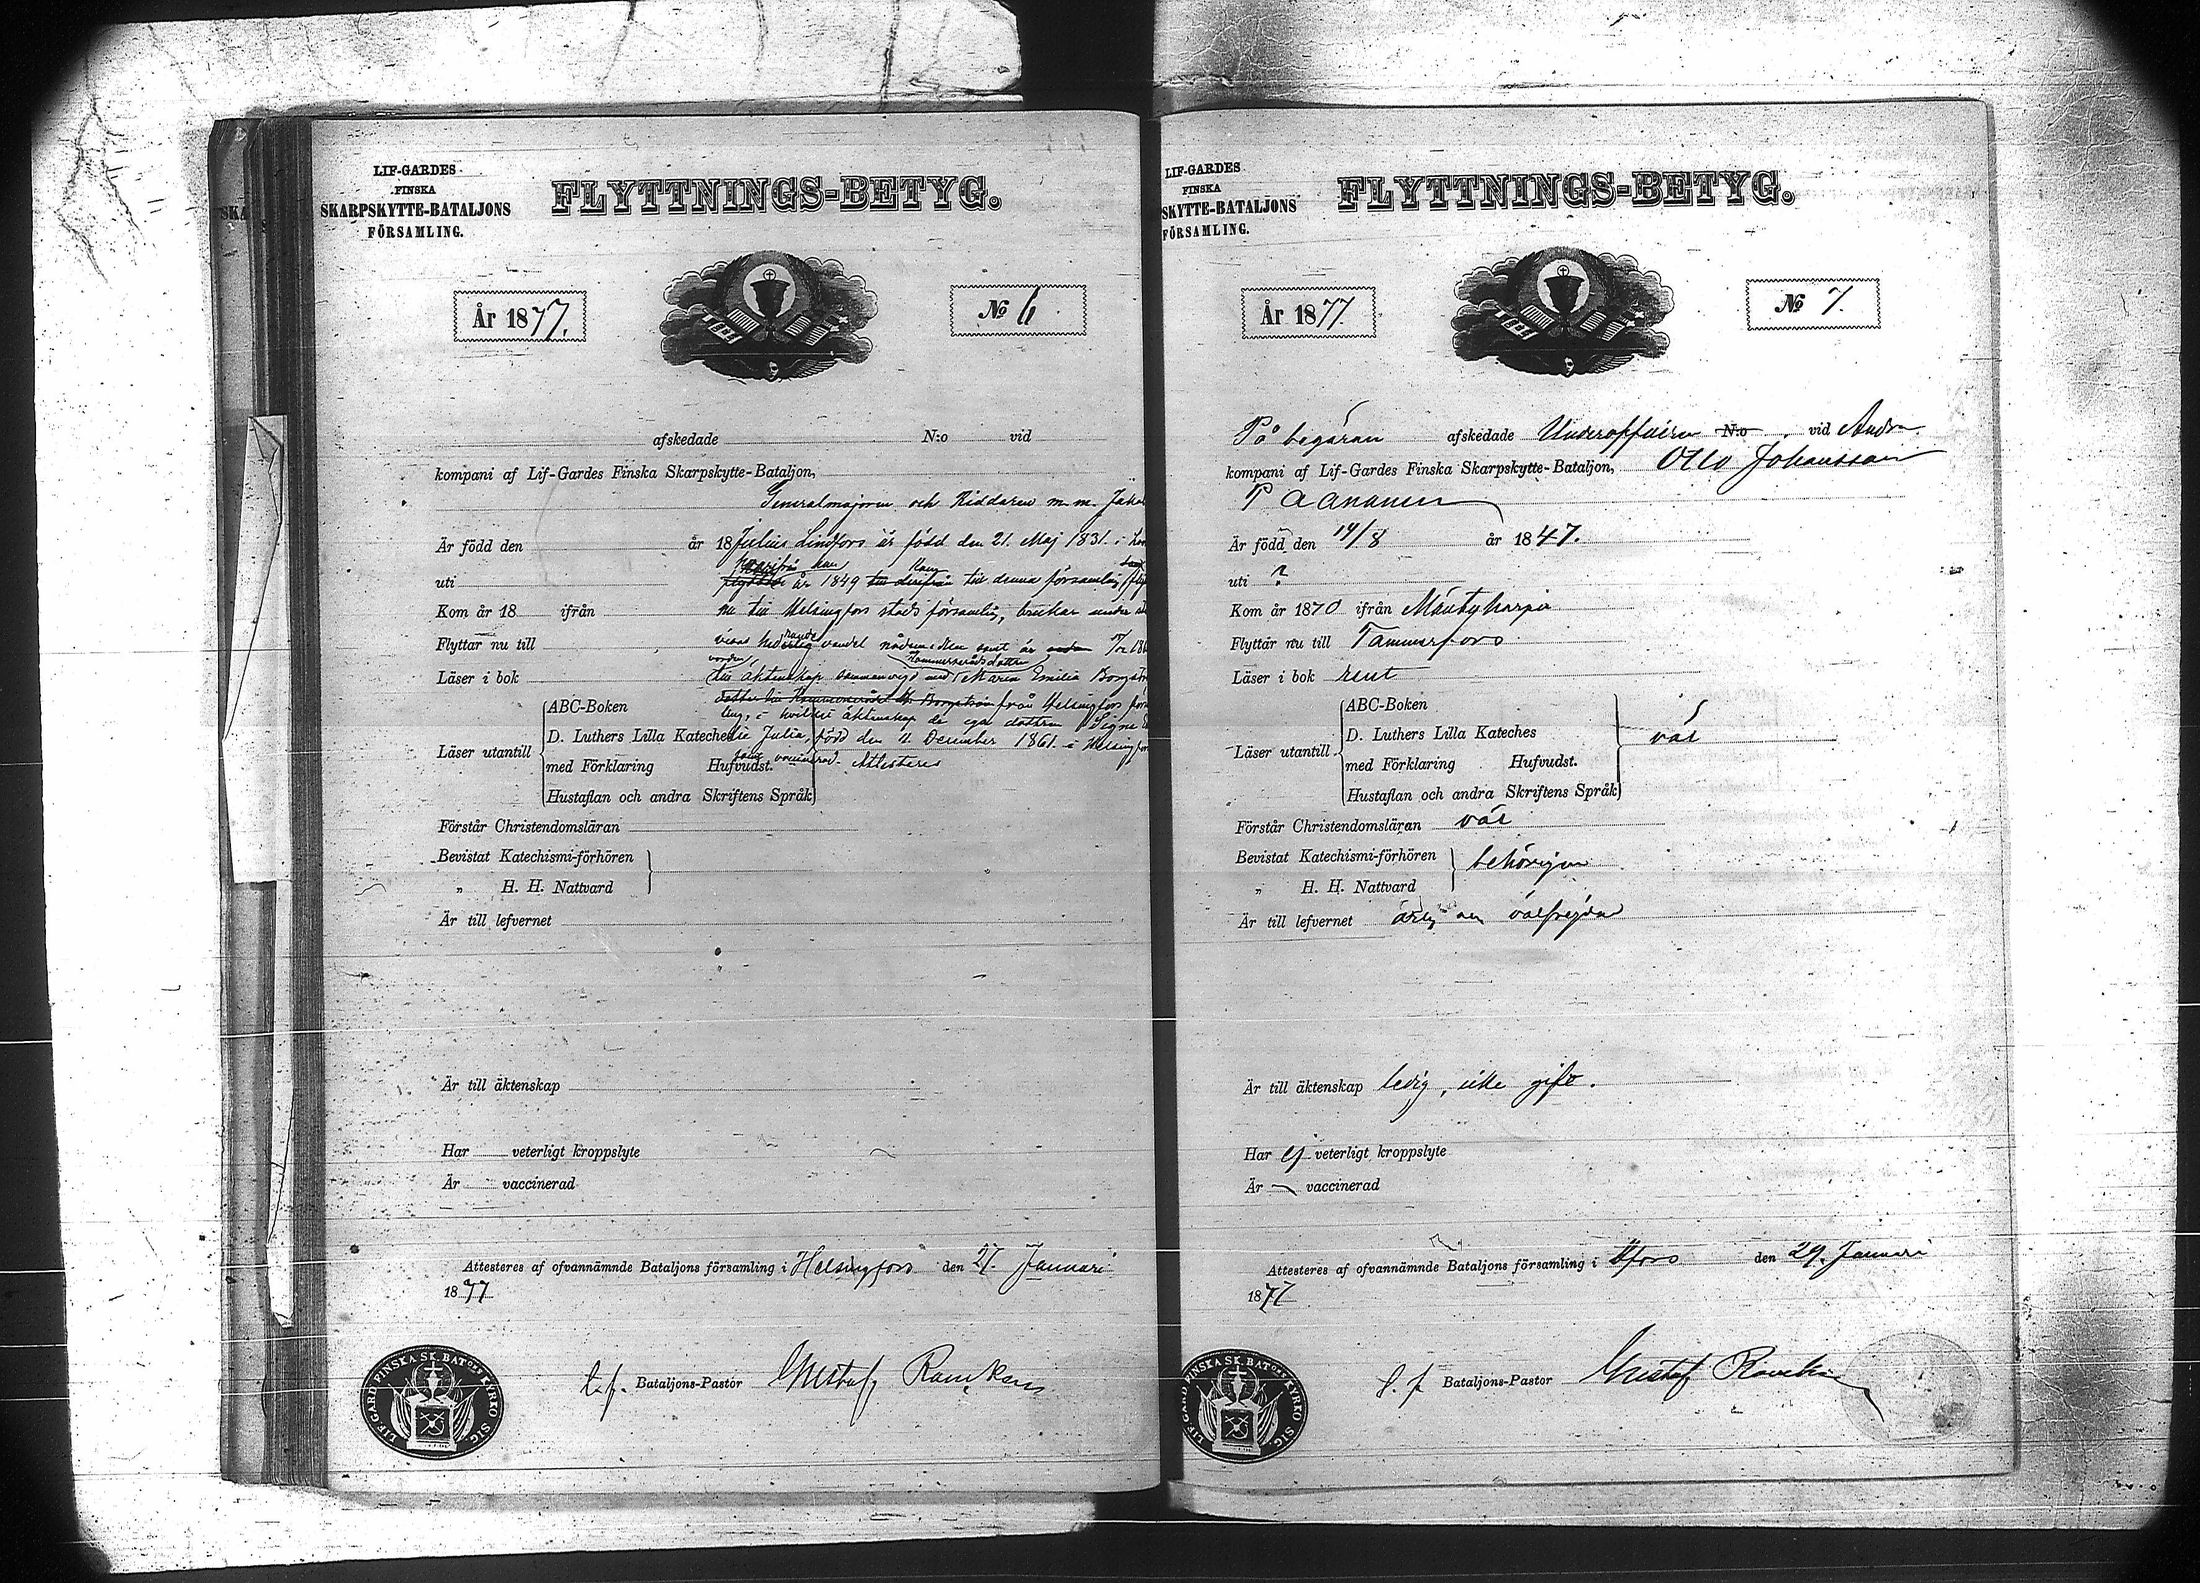 LIF-GARDES
FINSKA
SKARPSKYTTE-BATALJONS
FÖRSAMLING.
FLYTTNINGS-BETYG.
År 1877.
No 6
afskedade N:o vid
kompani af Lif-Gardes Finska Skarpskytte-Bataljon,
Generalmajoren och Riddaren m. m. Jakob
Är född den år 18 Julius Lindfors är född den 21. Maj 1831. i
uti år 1849 till denna församling
Kom år 18 ifrån nu till Helsingfors stads församling, brukar
Flyttar nu till vandel
Läser i bok till äktenskap sammanvigd med Kommerserådsdottren Maria Emilia
från Helsingfors
ABC-Boken
i hvilket äktenskap de ega dottren Signe
Läser utantill
D. Luthers Lilla Kateches Julia, född den 11 December 1861. i Helsingfors
med Förklaring Hufvudst. Attesteras
Hustaflan och andra Skriftens Språk
Förstår Christendomsläran
Bevistat Katechismi-förhören
„ H. H. Nattvard
Är till lefvernet
Är till äktenskap
Har veterligt kroppslyte
Är vaccinerad
Attesteres af ofvannämnde Bataljons församling i Helsingfors den 27. Januari
1877
t. f. Bataljons-Pastor Gustaf
LIF. GARD. FINSKA SK. BAT:OS KYRKO SIG.
LIF-GARDES
FINSKA
SKYTTE-BATALJONS
FÖRSAMLING.
FLYTTNINGS-BETYG.
År 1877.
No 7.
På begäran afskedade Underofficeren N:o vid Andra
kompani af Lif-Gardes Finska Skarpskytte-Bataljon, Otto Johansson
Paananen
Är född den 14/8 år 1847.
uti ?
Kom år 1870 ifrån Mäntyharju
Flyttar nu till Tammerfors
Läser i bok rent
Läser utantill
ABC-Boken
D. Luthers Lilla Kateches väl
med Förklaring Hufvudst.
Hustaflan och andra Skriftens Språk
Förstår Christendomsläran väl
Bevistat Katechismi-förhören behörigen
„ H. H. Nattvard
Är till lefvernet ärlig och välfrejdad
Är till äktenskap ledig, icke gift.
Har ej veterligt kroppslyte
Är — vaccinerad
Attesteres af ofvannämnde Bataljons församling i Hfors den 29. Januari
1877
t. f. Bataljons-Pastor Gustaf
LIF. GARD. FINSKA SK. BAT:OS KYRKO SIG.